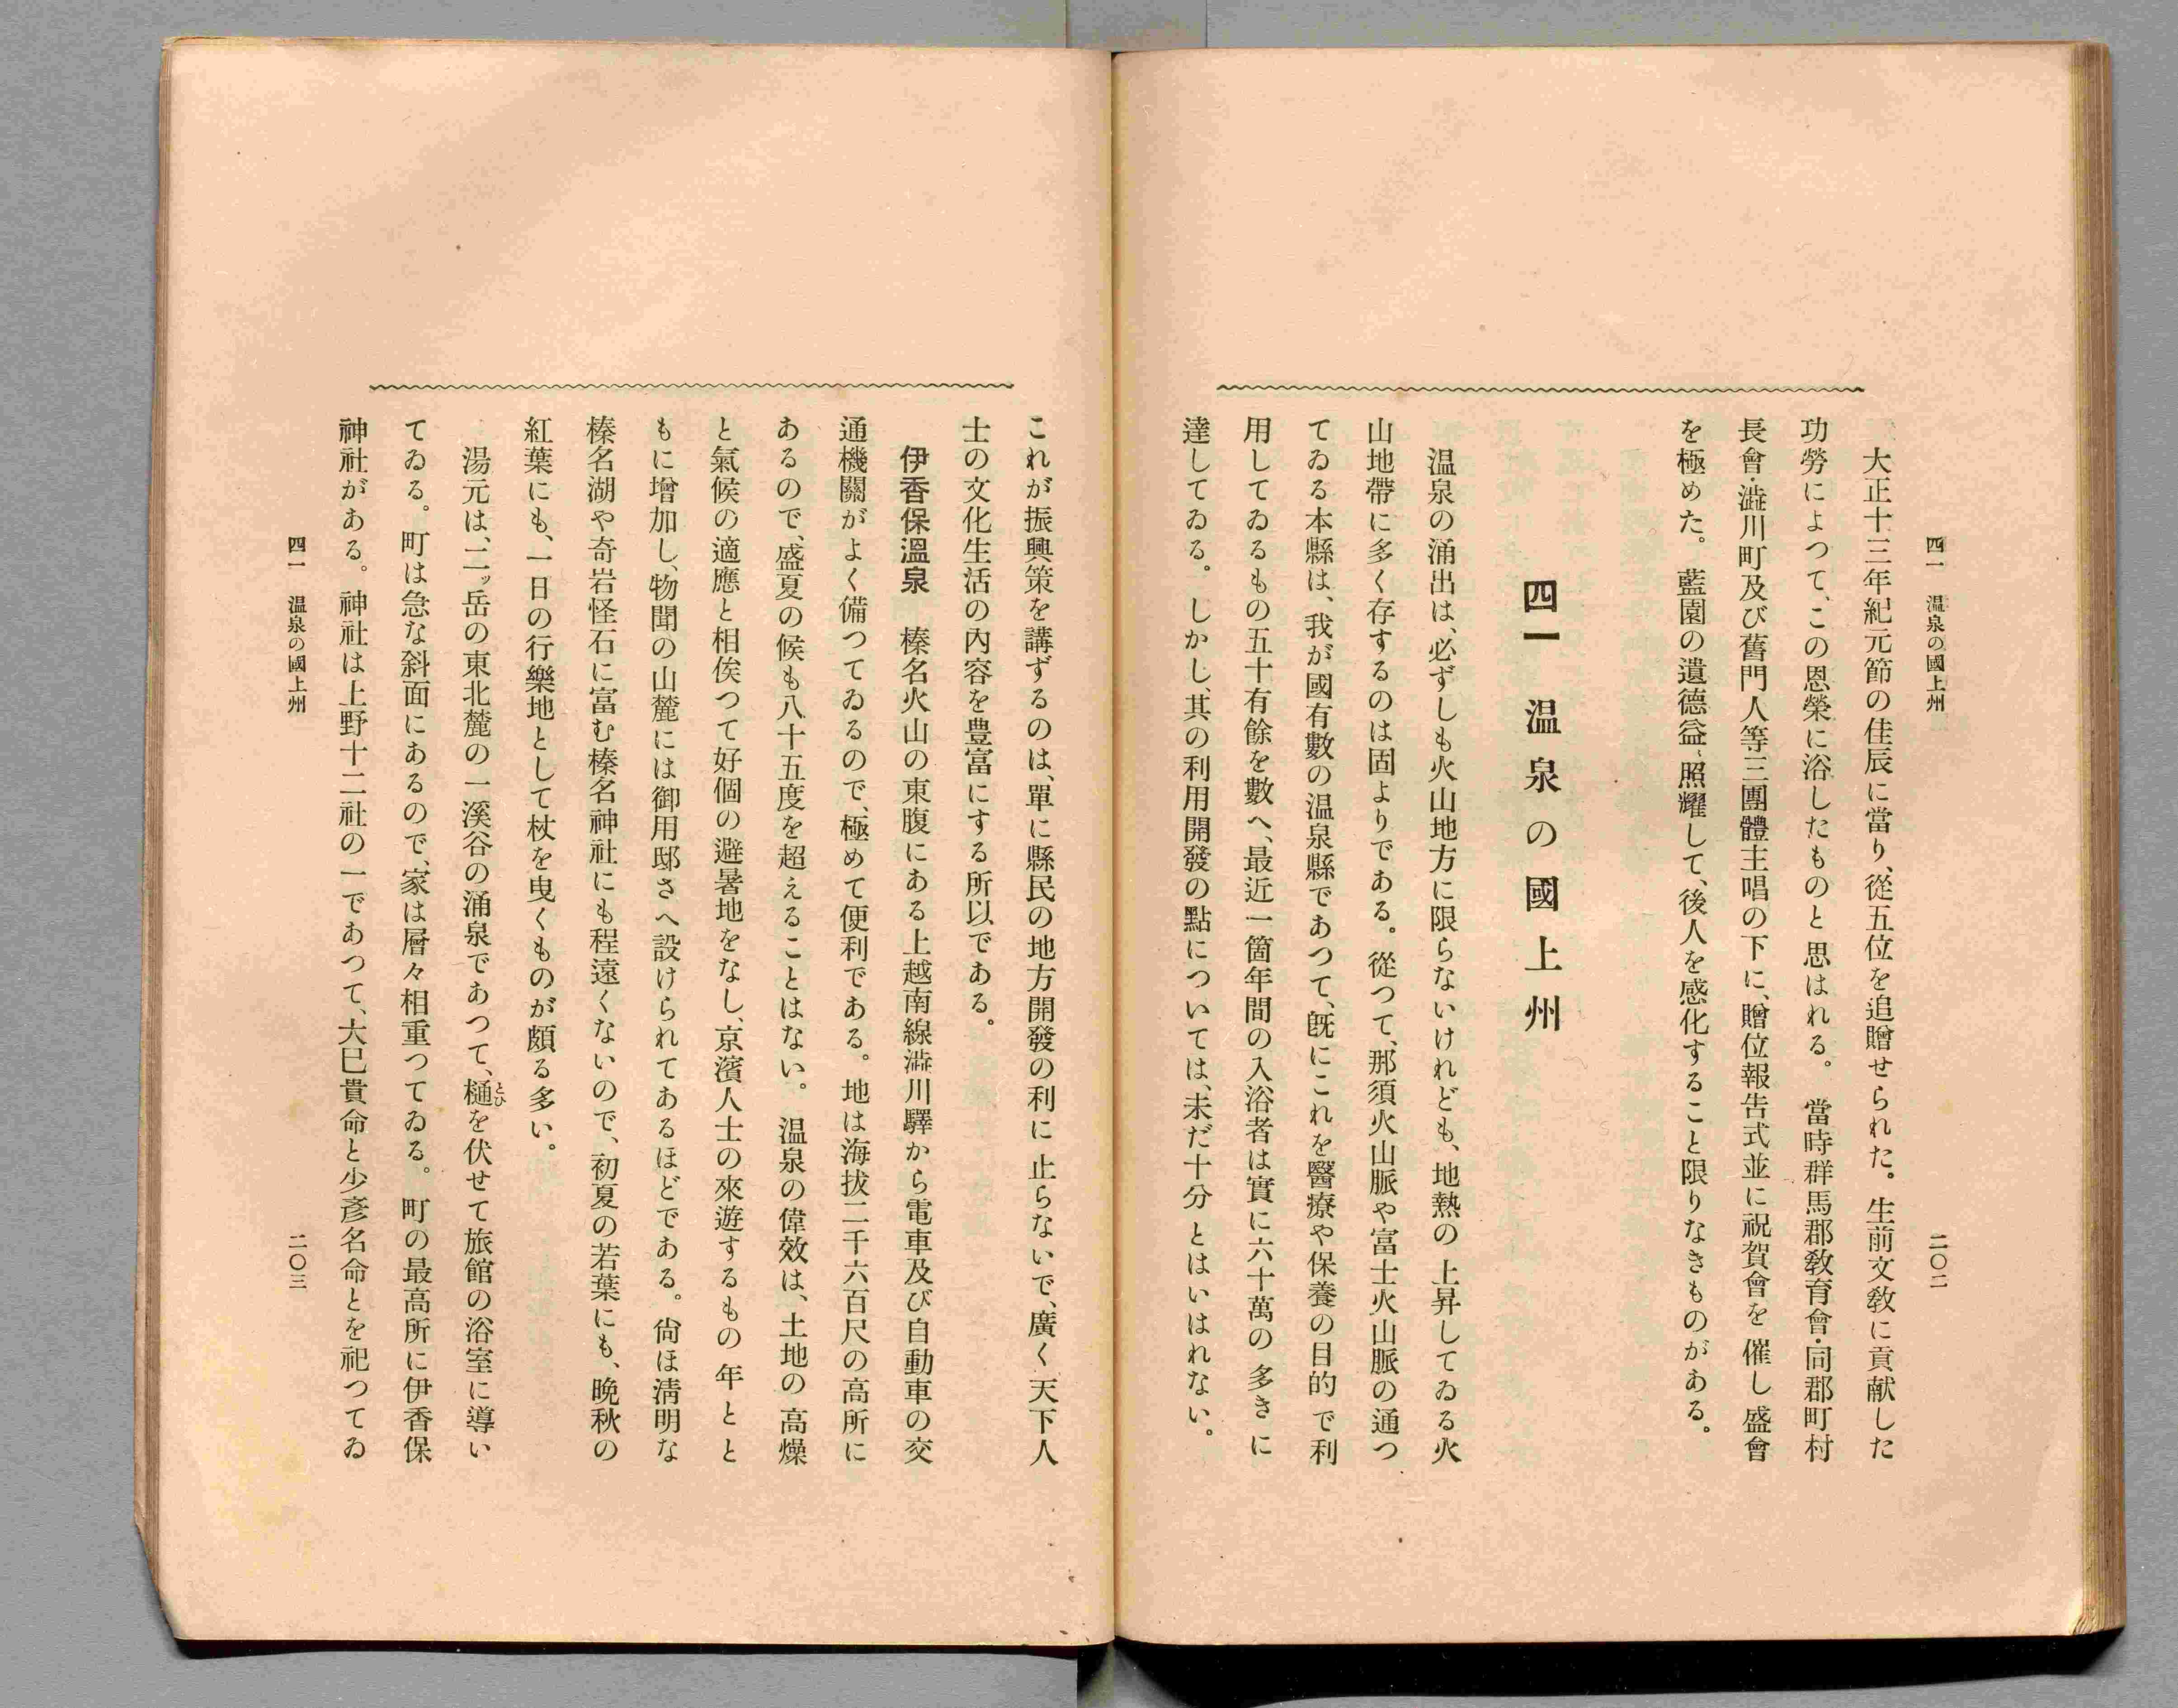 四一　温泉の國上州
二〇二
大正十三年紀元節の佳辰に當り、從五位を追贈せられた。生前文敎に貢獻した
功勞によつて、この恩榮に浴したものと思はれる。當時群馬郡敎育會・同郡町村
長會・澁川町及び舊門人等三團體主唱の下に、贈位報告式並に祝賀會を催し盛會
を極めた。藍園の遺德益〻照耀して、後人を感化すること限りなきものがある。
四一　温泉の國上州
温泉の涌出は、必ずしも火山地方に限らないけれども、地熱の上昇してゐる火
山地帶に多く存するのは固よりである。從つて、那須火山脈や富士火山脈の通つ
てゐる本縣は、我が國有數の温泉縣であつて、旣にこれを醫療や保養の目的で利
用してゐるもの五十有餘を數へ、最近一箇年間の入浴者は實に六十萬の多きに
達してゐる。しかし、其の利用開發の點については、未だ十分とはいはれない。
これが振興策を講ずるのは、單に縣民の地方開發の利に止らないで、廣く天下人
士の文化生活の內容を豊富にする所以である。
伊香保溫泉　榛名火山の東腹にある上越南線澁川驛から電車及び自動車の交
通機關がよく備つてゐるので、極めて便利である。地は海拔二千六百尺の高所に
あるので、盛夏の候も八十五度を超えることはない。温泉の偉效は、土地の高燥
と氣候の適應と相俟つて好個の避暑地をなし、京濱人士の來遊するもの年とと
もに增加し、物聞の山麓には御用邸さへ設けられてあるほどである。尙ほ淸明な
榛名湖や奇岩怪石に富む榛名神社にも程遠くないので、初夏の若葉にも、晩秋の
紅葉にも、一日の行樂地として杖を曳くものが頗る多い。
湯元は、二ッ岳の東北麓の一溪谷の涌泉であつて、樋とひを伏せて旅館の浴室に導い
てゐる。町は急な斜面にあるので、家は層々相重つてゐる。町の最高所に伊香保
神社がある。神社は上野十二社の一であつて、大巳貴命と少彥名命とを祀つてゐ
四一　温泉の國上州
二〇三